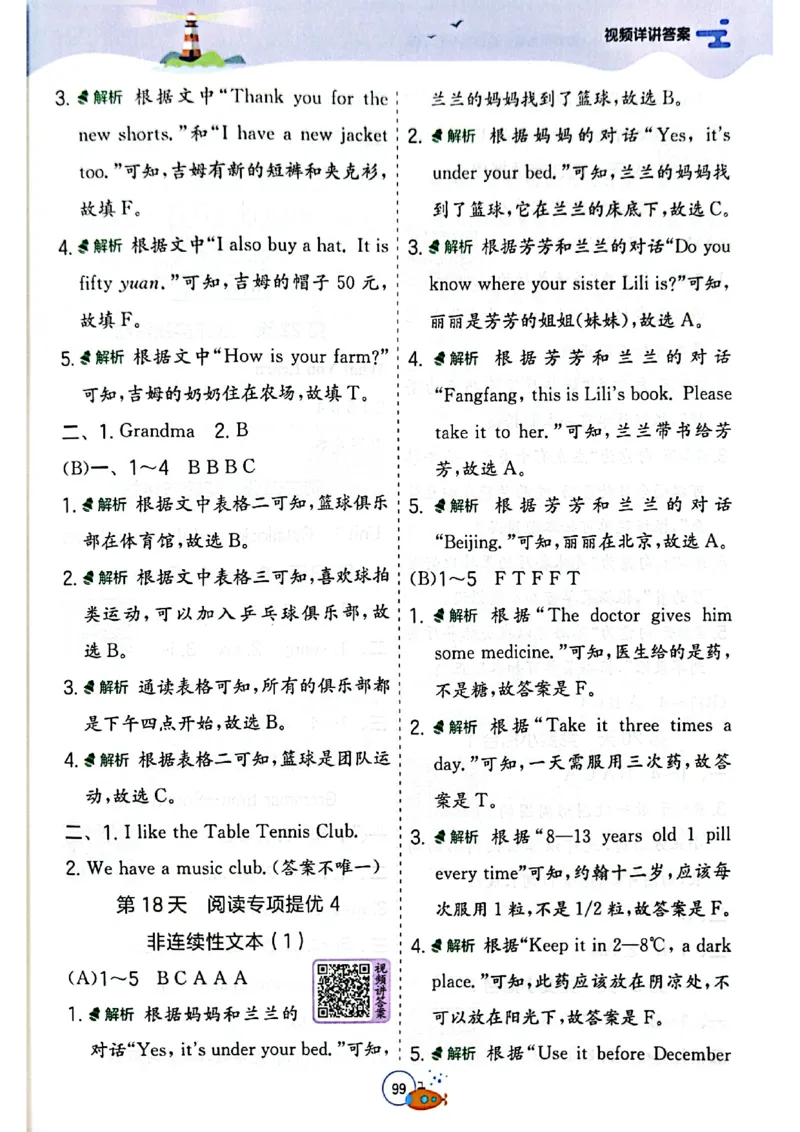 视频详讲答案
3. 解析 根据文中“Thank you for the
new shorts.”和“I have a new jacket
too.”可知,吉姆有新的短裤和夹克衫,
故填 F。
4. 解析 根据文中“I also buy a hat. It is
fifty yuan.”可知,吉姆的帽子 50 元,
故填 F。
5. 解析 根据文中“How is your farm?”
可知,吉姆的奶奶住在农场,故填 T。
二、1. Grandma 2. B
(B)一、1~4 B B B C
1. 解析 根据文中表格二可知,篮球俱乐
部在体育馆,故选 B。
2. 解析 根据文中表格三可知,喜欢球拍
类运动,可以加入乒乓球俱乐部,故
选 B。
3. 解析 通读表格可知,所有的俱乐部都
是下午四点开始,故选 B。
4. 解析 根据表格二可知,篮球是团队运
动,故选 C。
二、1. I like the Table Tennis Club.
2. We have a music club. (答案不唯一)
第 18 天 阅读专项提优 4
非连续性文本(1)
(A)1~5 B C A A A
视频讲答案
1. 解析 根据妈妈和兰兰的
对话“Yes, it's under your bed.”可知,
兰兰的妈妈找到了篮球,故选 B。
2. 解析 根据妈妈的对话“Yes, it's
under your bed.”可知,兰兰的妈妈找
到了篮球,它在兰兰的床底下,故选 C。
3. 解析 根据芳芳和兰兰的对话“Do you
know where your sister Lili is?”可知,
丽丽是芳芳的姐姐(妹妹),故选 A。
4. 解析 根据芳芳和兰兰的对话
“Fangfang, this is Lili's book. Please
take it to her.”可知,兰兰带书给芳
芳,故选 A。
5. 解析 根据芳芳和兰兰的对话
“Beijing.”可知,丽丽在北京,故选 A。
(B)1~5 F T F F T
1. 解析 根据“The doctor gives him
some medicine.”可知,医生给的是药,
不是糖,故答案是 F。
2. 解析 根据“Take it three times a
day.”可知,一天需服用三次药,故答
案是 T。
3. 解析 根据“8—13 years old 1 pill
every time”可知,约翰十二岁,应该每
次服用 1 粒,不是 1/2 粒,故答案是 F。
4. 解析 根据“Keep it in 2—8℃, a dark
place.”可知,此药应该放在阴凉处,不
可以放在阳光下,故答案是 F。
5. 解析 根据“Use it before December
99